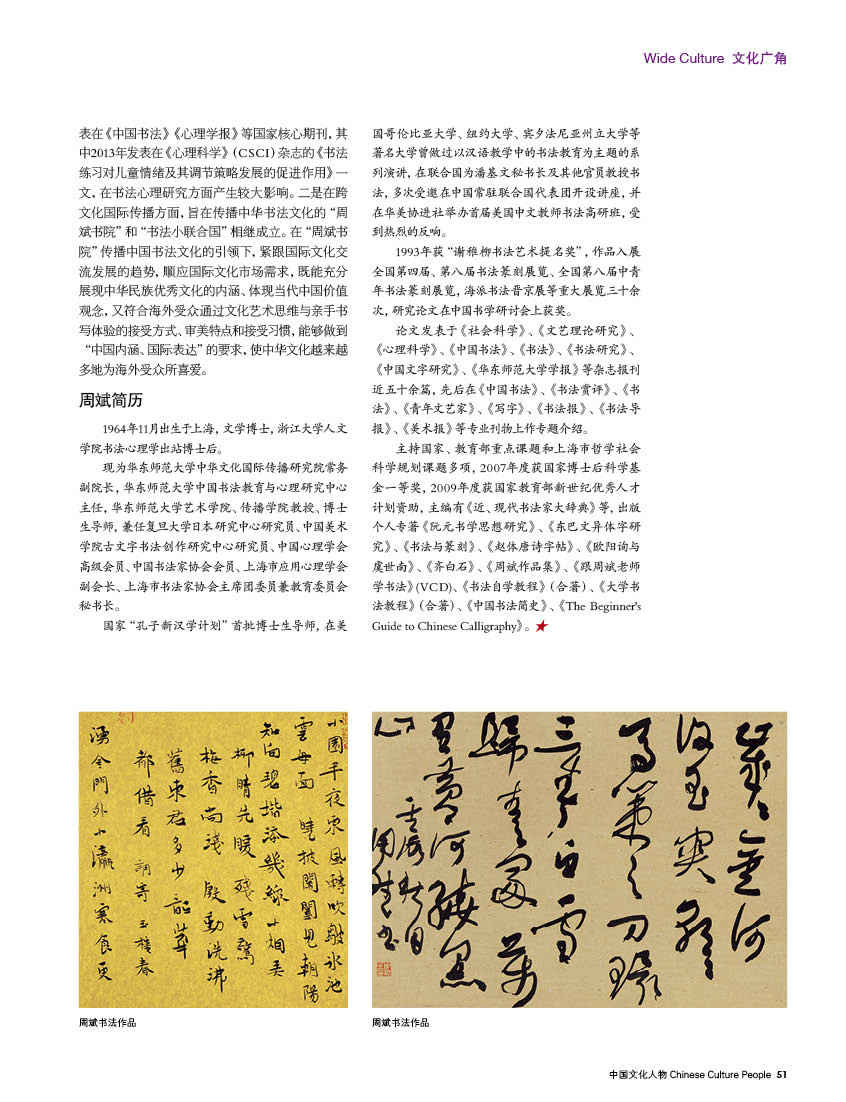 Wide Culture 文化广角
表在《中国书法》《心理学报》等国家核心期刊，其
中2013年发表在《心理科学》（CSCI）杂志的《书法
练习对儿童情绪及其调节策略发展的促进作用》一
文，在书法心理研究方面产生较大影响。二是在跨
文化国际传播方面，旨在传播中华书法文化的“周
斌书院”和“书法小联合国”相继成立。在“周斌书
院”传播中国书法文化的引领下，紧跟国际文化交
流发展的趋势，顺应国际文化市场需求，既能充分
展现中华民族优秀文化的内涵、体现当代中国价值
观念，又符合海外受众通过文化艺术思维与亲手书
写体验的接受方式、审美特点和接受习惯，能够做到
“中国内涵、国际表达”的要求，使中华文化越来越
多地为海外受众所喜爱。
周斌简历
1964年11月出生于上海，文学博士，浙江大学人文
学院书法心理学出站博士后。
现为华东师范大学中华文化国际传播研究院常务
副院长，华东师范大学中国书法教育与心理研究中心
主任，华东师范大学艺术学院、传播学院教授、博士
生导师，兼任复旦大学日本研究中心研究员、中国美术
学院古文字书法创作研究中心研究员、中国心理学会
高级会员、中国书法家协会会员、上海市应用心理学会
副会长、上海市书法家协会主席团委员兼教育委员会
秘书长。
国家“孔子新汉学计划”首批博士生导师，在美
国哥伦比亚大学、纽约大学、宾夕法尼亚州立大学等
著名大学曾做过以汉语教学中的书法教育为主题的系
列演讲，在联合国为潘基文秘书长及其他官员教授书
法，多次受邀在中国常驻联合国代表团开设讲座，并
在华美协进社举办首届美国中文教师书法高研班，受
到热烈的反响。
1993年获“谢稚柳书法艺术提名奖”，作品入展
全国第四届、第八届书法篆刻展览、全国第八届中青
年书法篆刻展览，海派书法晋京展等重大展览三十余
次，研究论文在中国书学研讨会上获奖。
论文发表于《社会科学》、《文艺理论研究》、
《心理科学》、《中国书法》、《书法》、《书法研究》、
《中国文字研究》、《华东师范大学学报》等杂志报刊
近五十余篇，先后在《中国书法》、《书法赏评》、《书
法》、《青年文艺家》、《写字》、《书法报》、《书法导
报》、《美术报》等专业刊物上作专题介绍。
主持国家、教育部重点课题和上海市哲学社会
科学规划课题多项，2007年度获国家博士后科学基
金一等奖，2009年度获国家教育部新世纪优秀人才
计划资助，主编有《近、现代书法家大辞典》等，出版
个人专著《阮元书学思想研究》、《东巴文异体字研
究》、《书法与篆刻》、《赵体唐诗字帖》、《欧阳询与
虞世南》、《齐白石》、《周斌作品集》、《跟周斌老师
学书法》(VCD)、《书法自学教程》（合著）、《大学书
法教程》（合著）、《中国书法简史》、《The Beginner's
Guide to Chinese Calligraphy》。
小園半夜東風轉吹皺冰池
雲母面 曉披閶闔見朝陽
知向碧堦添幾線小烟弄
柳晴先暖 殘雪驚
梅香尚淺 殷勤洗沸
舊東君多少韶華
都借看 調寄玉樓春
湧金門外小瀛洲寒食更
歲歲金河
復玉關朝朝
馬策与刀環
三春白雪
歸青冢萬
里黃河繞黑
山
壬辰秋月
周斌書
周斌书法作品
周斌书法作品
中国文化人物 Chinese Culture People 51